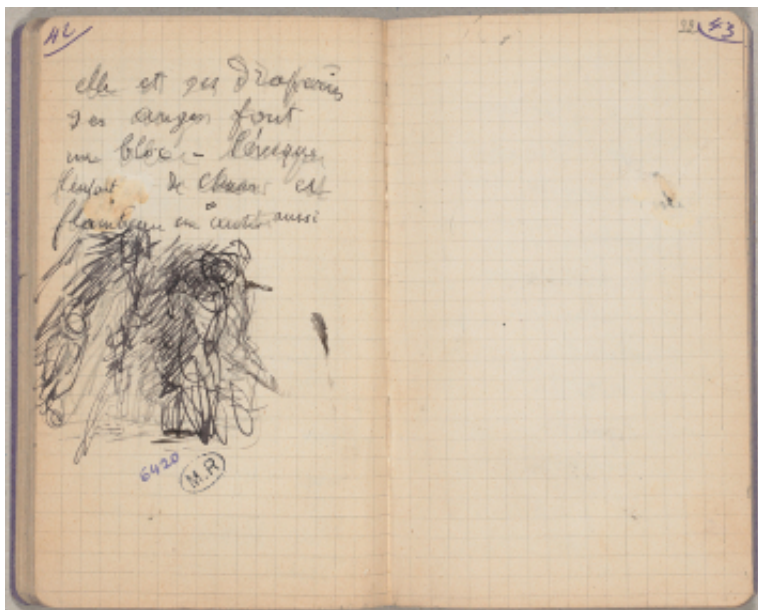 42
elle et ses draperies
ses anges font
un bloc - l'évêque
l'enfant de chœur est
flambeau un autre aussi
6420
M.R
43